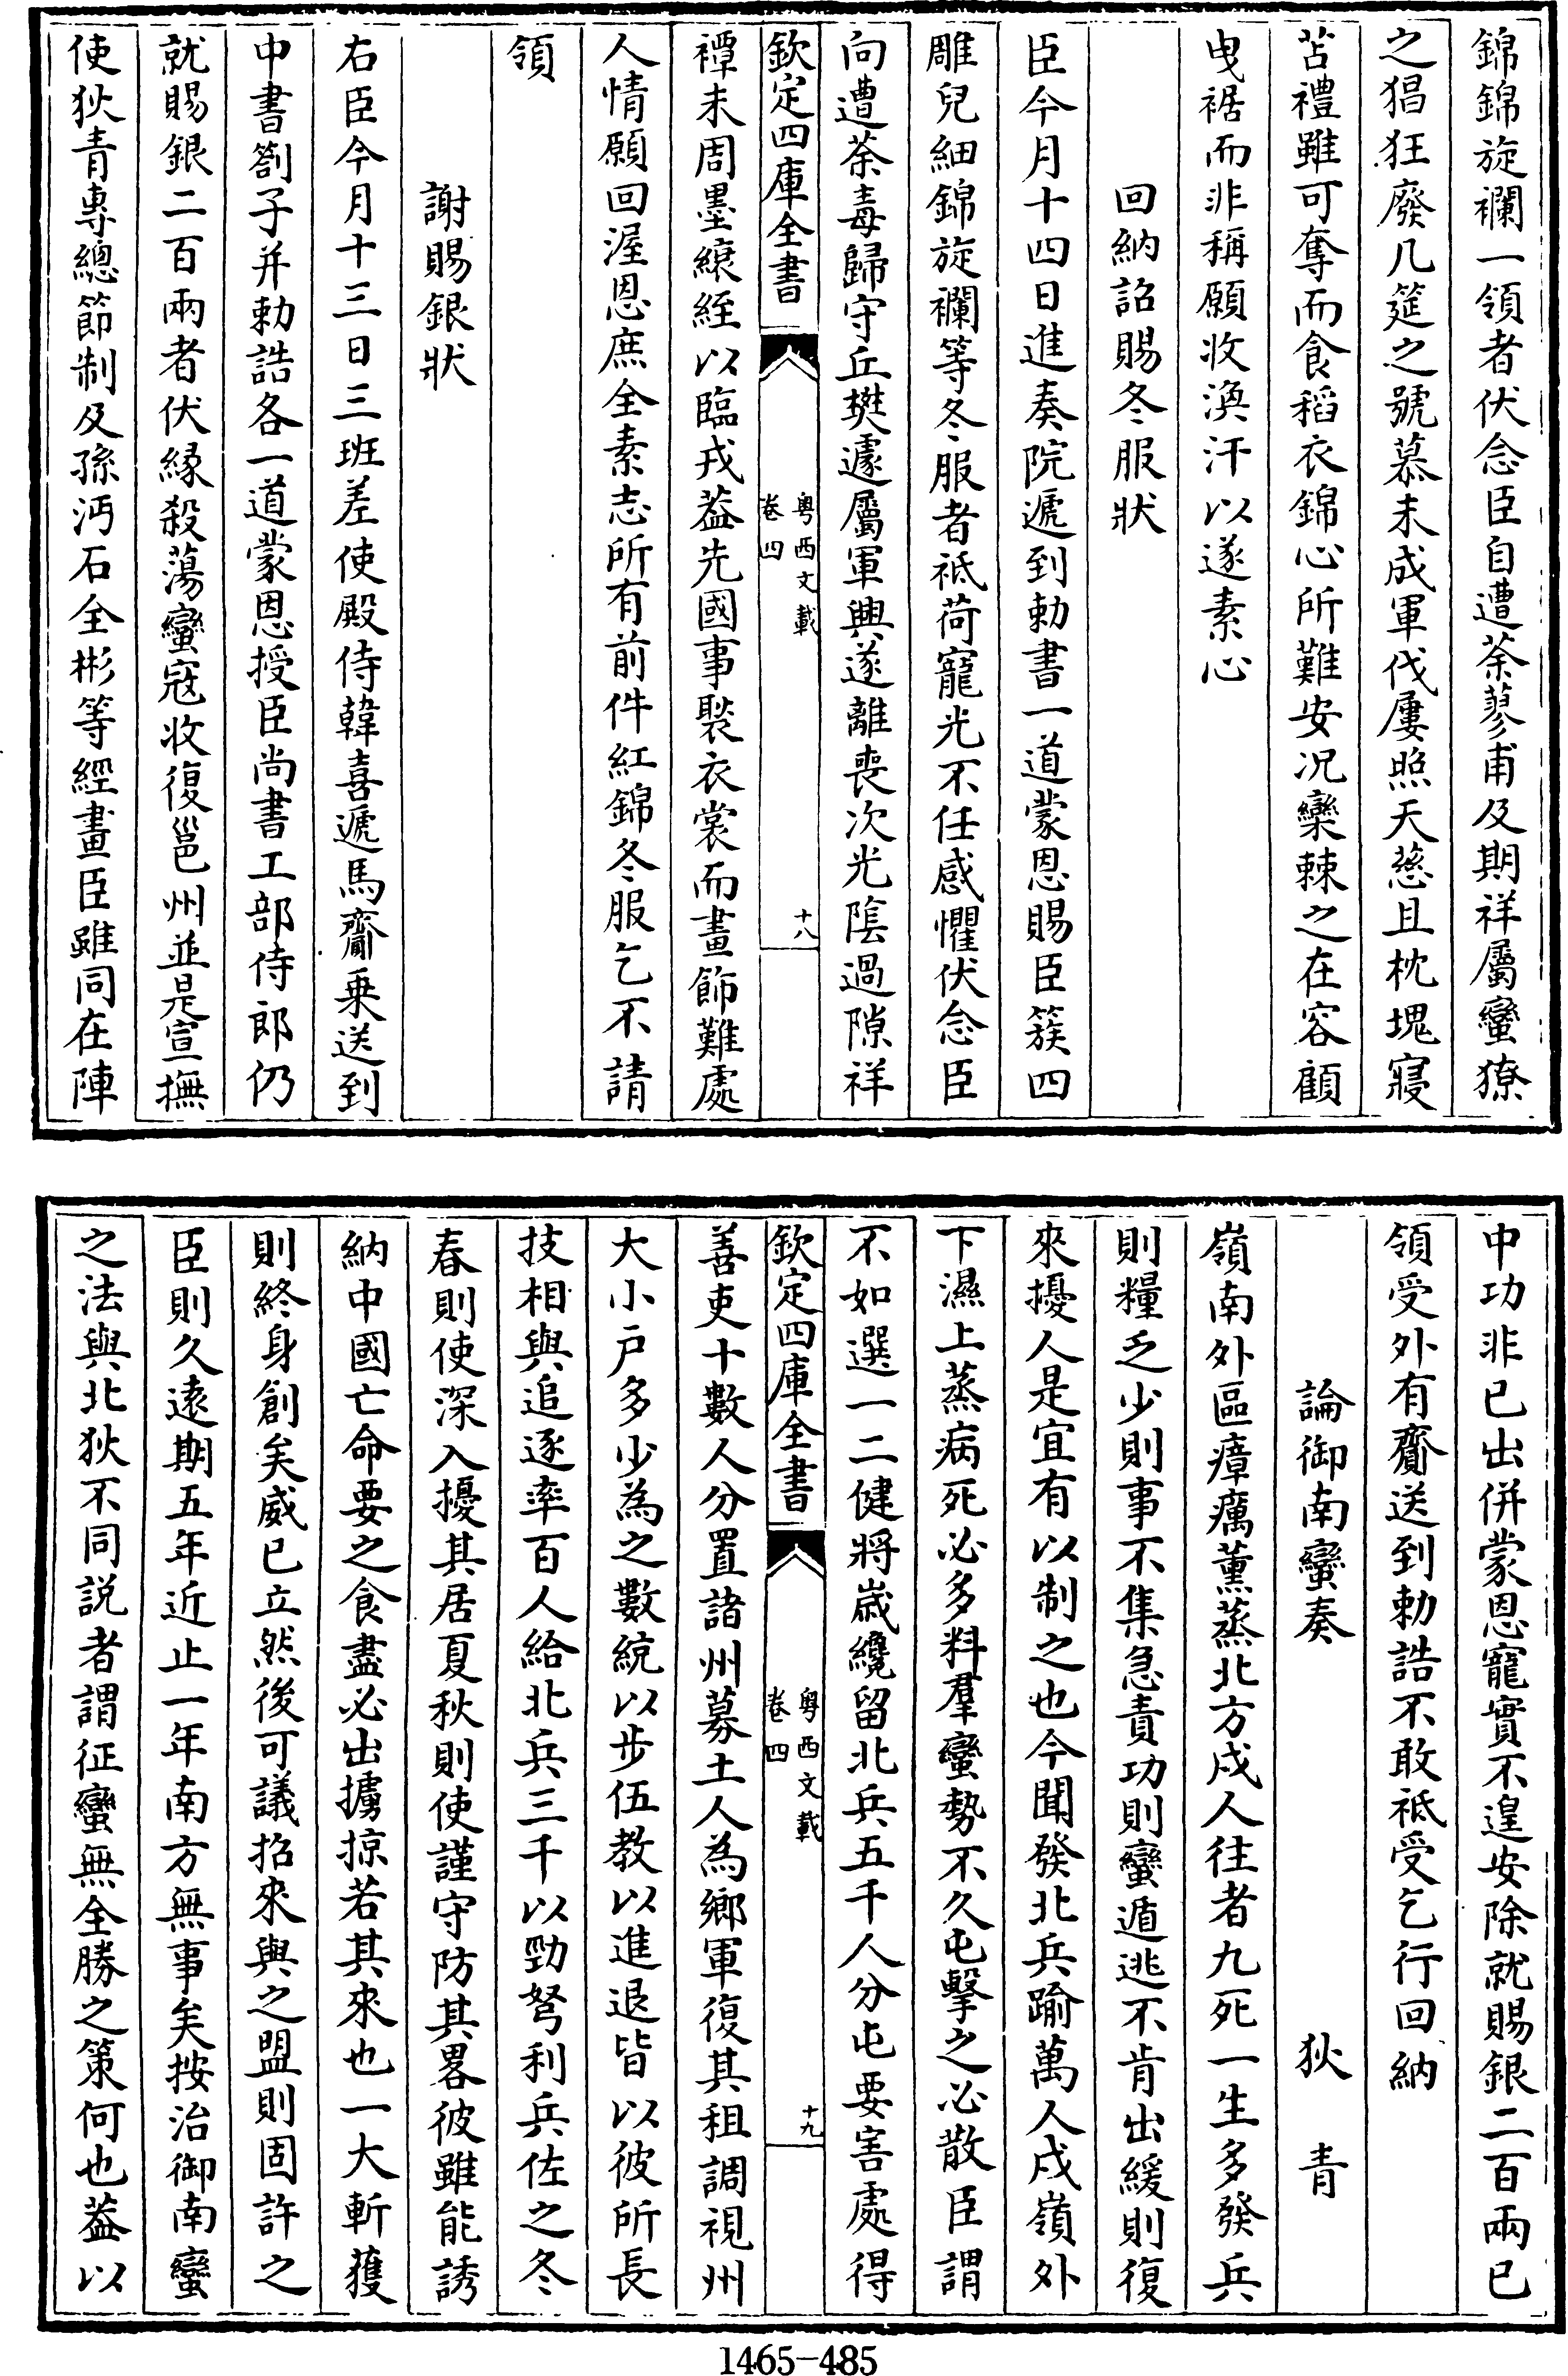 錦錦旋襴一領者伏念臣自遭荼蓼甫及期祥屬蠻獠
之猖狂廢几筵之號慕未成軍伐屢照天慈且枕塊寢
苫禮雖可奪而食稻衣錦心所難安况欒棘之在容顧
曳裾而非稱願收渙汗以遂素心
回納詔賜冬服狀
臣今月十四日進奏院遞到勅書一道蒙恩賜臣簇四
雕兒細錦旋襴等冬服者祗荷寵光不任感懼伏念臣
向遭荼毒歸守丘樊遽屬軍興遂離喪次光陰過隙祥
欽定四庫全書
粤西文載
卷四
十八
禫未周墨縗絰以臨戎葢先國事褧衣裳而晝飾難處
人情願回渥恩庶全素志所有前件紅錦冬服乞不請
領
謝賜銀狀
右臣今月十三日三班差使殿侍韓喜遞馬齎乗送到
中書劄子并勅誥各一道蒙恩授臣尚書工部侍郎仍
就賜銀二百兩者伏緣殺蕩蠻寇收復邕州並是宣撫
使狄青專總節制及孫沔石全彬等經畫臣雖同在陣
中功非已出併蒙恩寵實不遑安除就賜銀二百兩已
領受外有齎送到勅誥不敢祗受乞行回納
論御南蠻奏
狄青
嶺南外區瘴癘薰蒸北方戍人往者九死一生多發兵
則糧乏少則事不集急責功則蠻遁逃不肯出緩則復
來擾人是宜有以制之也今聞發北兵踰萬人戍嶺外
下濕上蒸病死必多料羣蠻勢不久屯擊之必散臣謂
不如選一二健將嵗纔留北兵五千人分屯要害處得
欽定四庫全書
粤西文載
卷四
十九
善吏十數人分置諸州募土人為鄉軍復其租調視州
大小戶多少為之數統以步伍教以進退皆以彼所長
技相與追逐率百人給北兵三千以勁弩利兵佐之冬
春則使深入擾其居夏秋則使謹守防其畧彼雖能誘
納中國亡命要之食盡必出擄掠若其來也一大斬獲
則終身創矣威已立然後可議招來與之盟則固許之
臣則久遠期五年近止一年南方無事矣按治御南蠻
之法與北狄不同説者謂征蠻無全勝之策何也葢以
1465-485